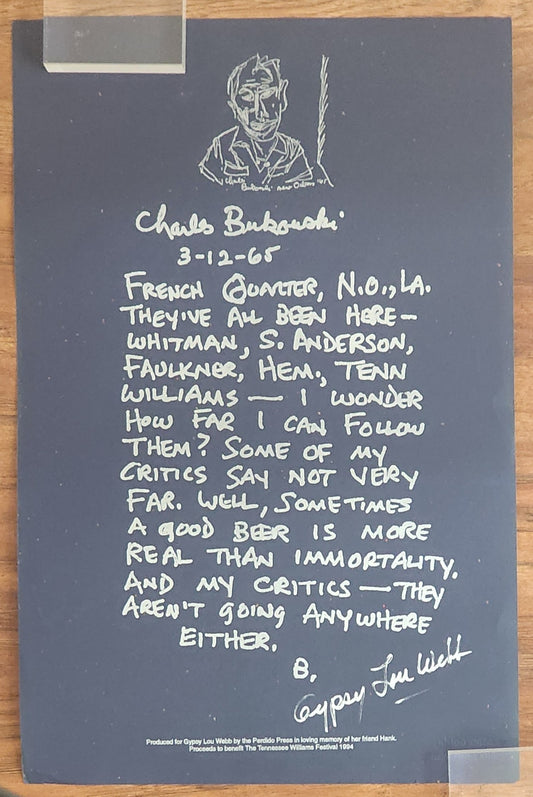 Charles
Bukowski New Orleans '65
Charles Bukowski
3-12-65
FRENCH QUARTER, N.O., LA.
THEY'VE ALL BEEN HERE —
WHITMAN, S. ANDERSON,
FAULKNER, HEM., TENN
WILLIAMS — I WONDER
HOW FAR I CAN FOLLOW
THEM? SOME OF MY
CRITICS SAY NOT VERY
FAR. WELL, SOMETIMES
A GOOD BEER IS MORE
REAL THAN IMMORTALITY.
AND MY CRITICS — THEY
AREN'T GOING ANYWHERE
EITHER.
B.
Gypsy Lou Webb
Produced for Gypsy Lou Webb by the Perdido Press in loving memory of her friend Hank.
Proceeds to benefit The Tennessee Williams Festival 1994